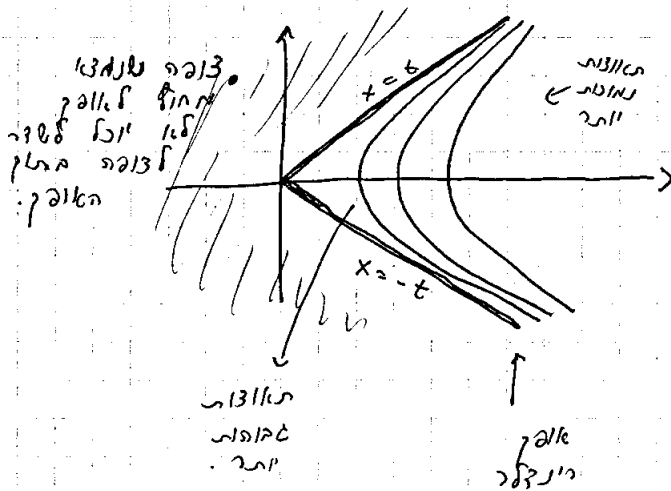 צופה שנמצא
מחוץ לאופק
לא יוכל לשדר
לצופה בתוך
האופק.
x = t
תאוצות
נמוכות
יותר
x = -t
תאוצות
גבוהות
יותר.
אופק
רינדלר